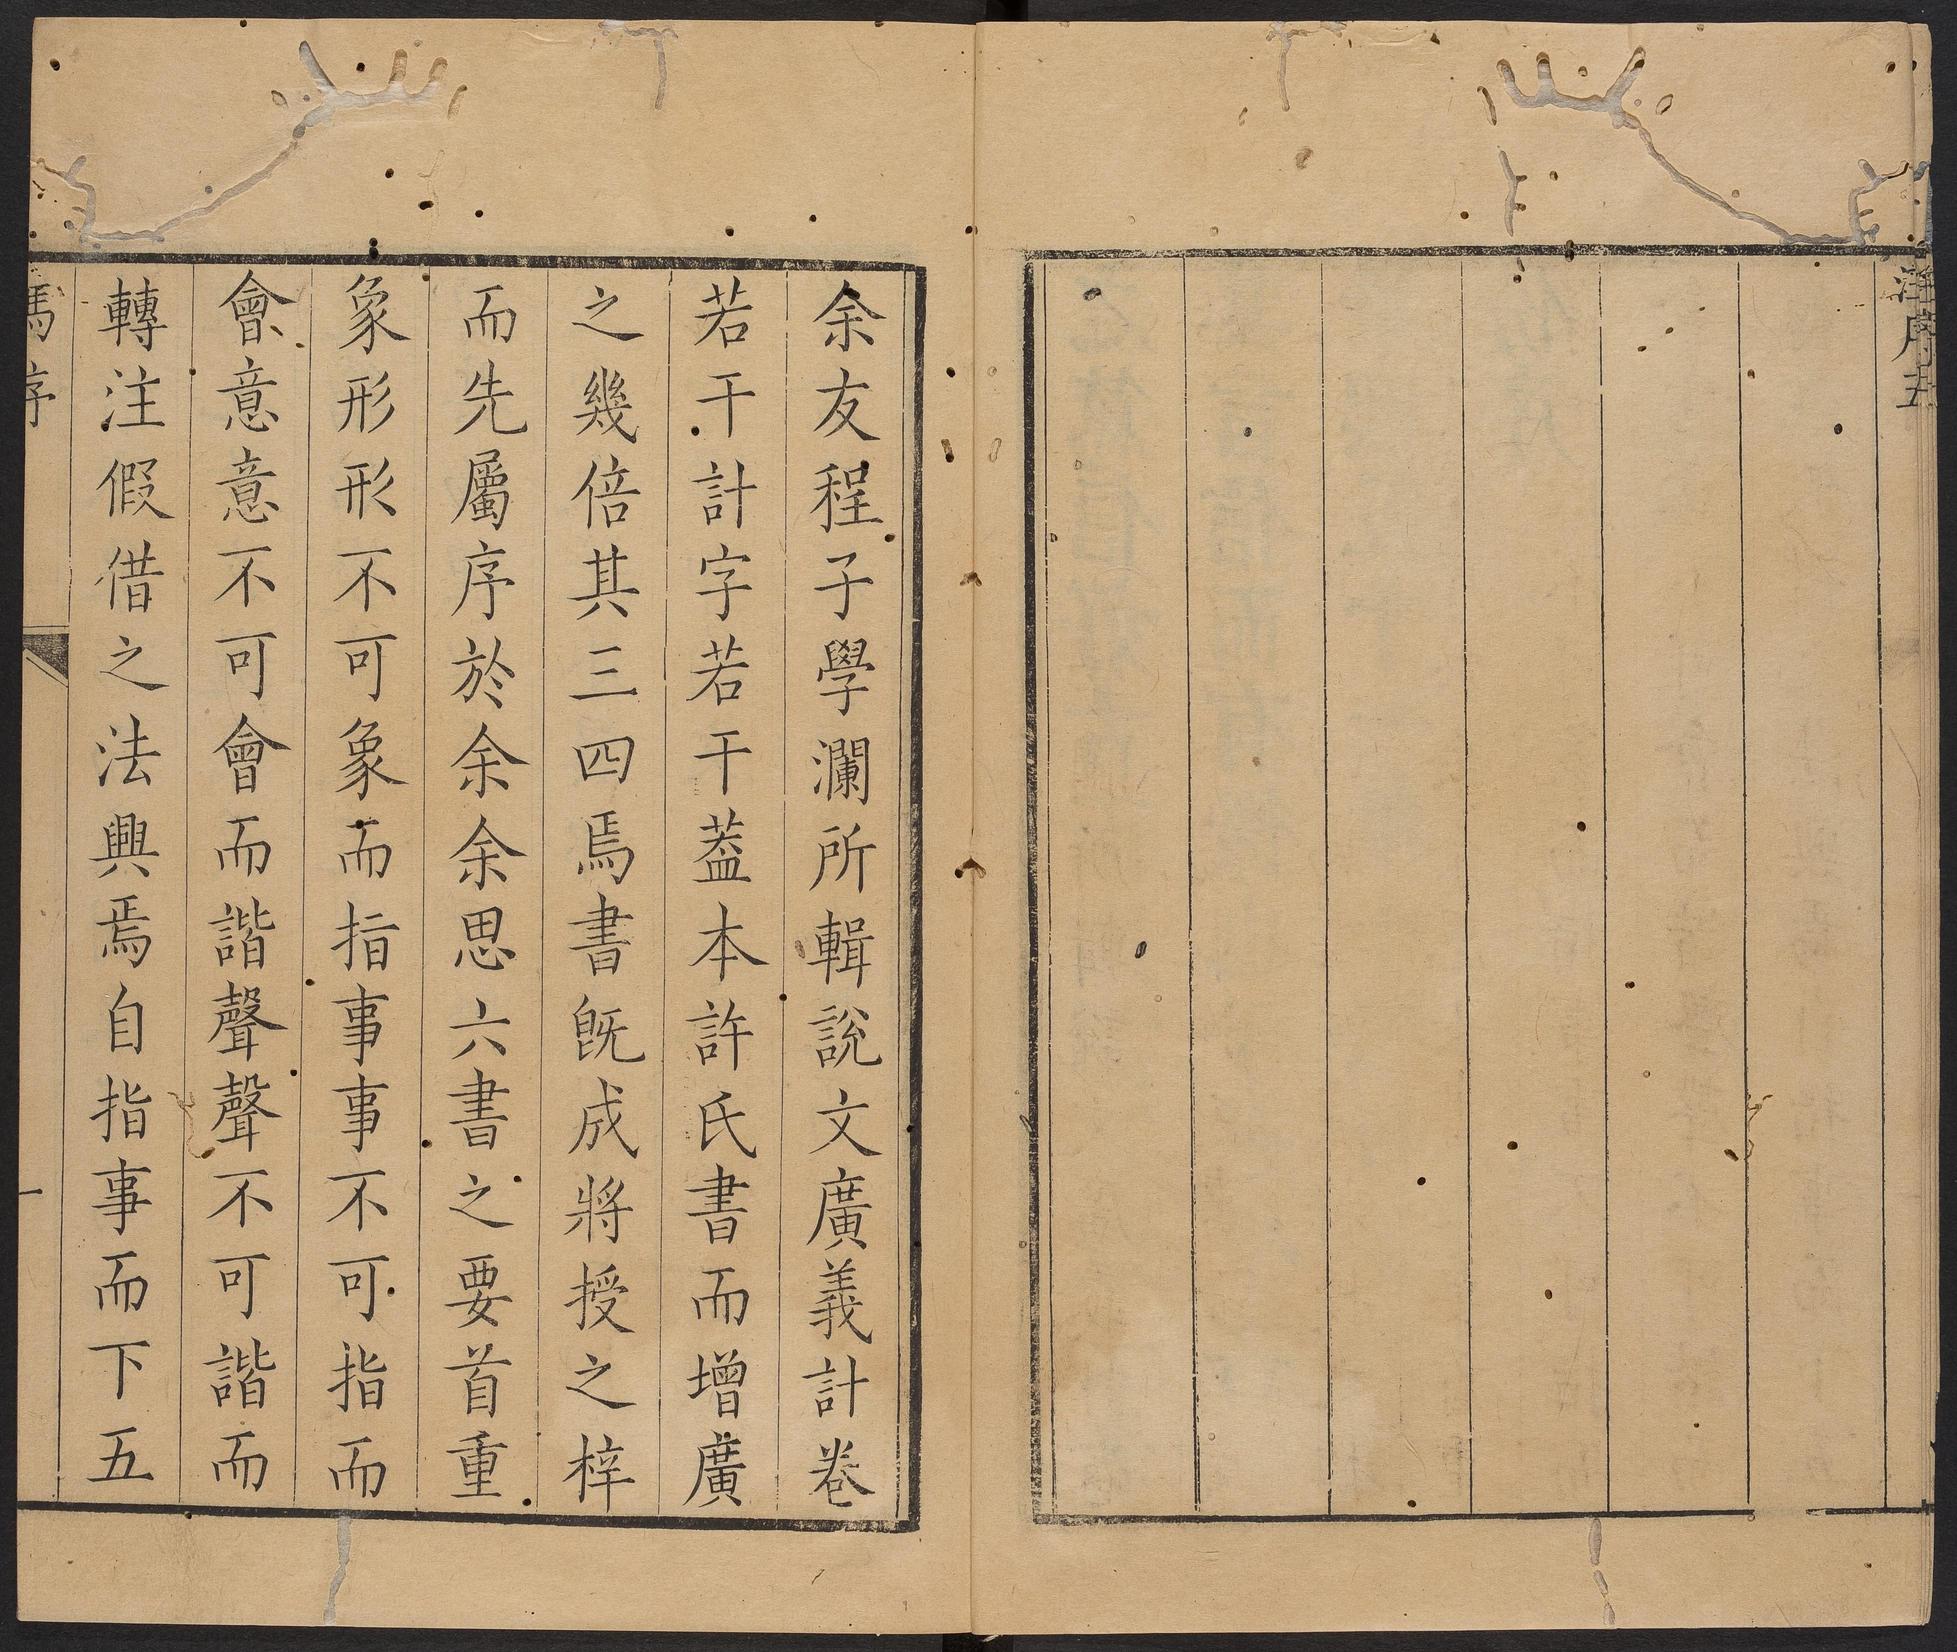 汪序 五
余友程子學瀾所輯說文廣義計卷
若干計字若干葢本許氏書而增廣
之幾倍其三四焉書旣成將授之梓
而先屬序於余余思六書之要首重
象形形不可象而指事事不可指而
會意意不可會而諧聲聲不可諧而
轉注假借之法興焉自指事而下五
馮序
一